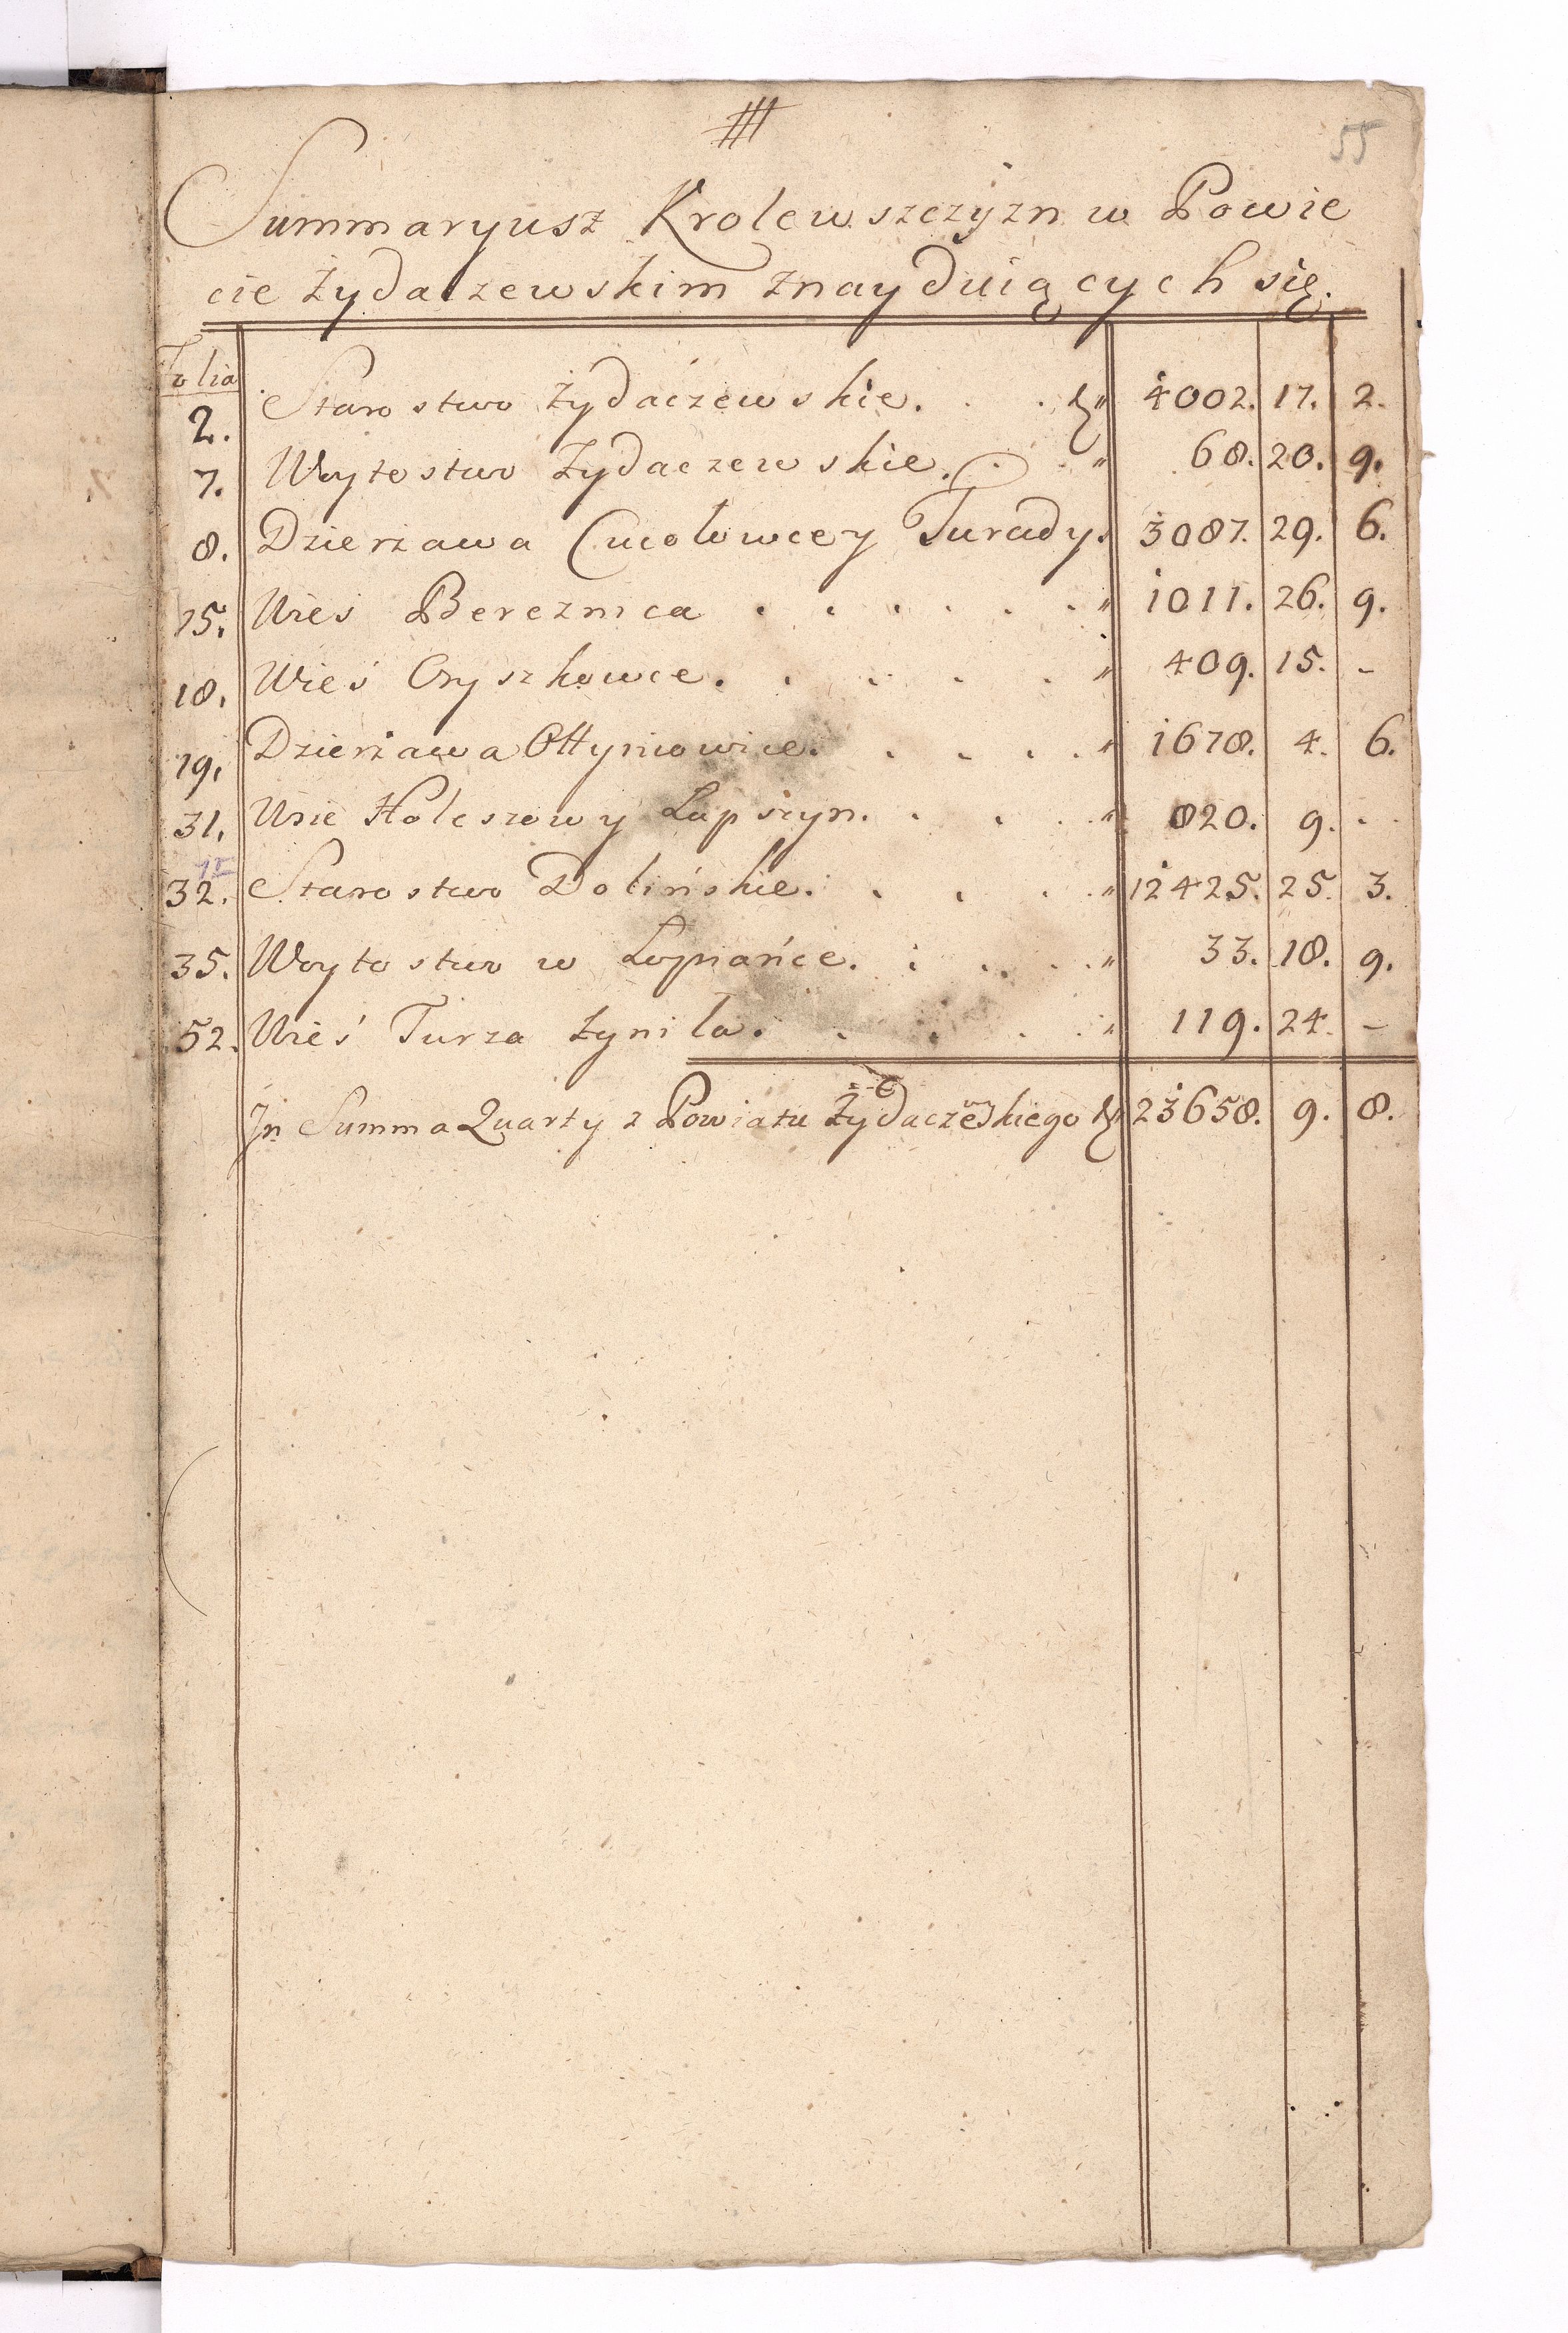 III
55
Summaryusz Krolewszczyzn w Powie
cie Żydaczewskim znayduiących się.
Folia
2. Starostwo Żydaczewskie. . . " 4002. 17. 2.
7. Woytostwo Żydaczewskie. . " 68. 20. 9.
8. Dzierżawa Cucołowcey Turady. 3087. 29. 6.
15. Wieś Bereznica . . . . . . " 1011. 26. 9.
18. Wieś Oryszkowce. . . . . " 409. 15. -
19. Dzierżawa Ottyniowice. . . . . " 1678. 4. 6.
31. Wsie Holeszowy Łapszyn. . . . " 820. 9. . .
32. Starostwo Dolińskie. . . . . " 12425. 25. 3.
35. Woytostwo w Łopiańce. . . . . " 33. 18. 9.
52. Wieś Turza Żyniła. . . . . " 119. 24. -
Jn Summa Quarty z Powiatu Żydaczewskiego 23658. 9. 8.